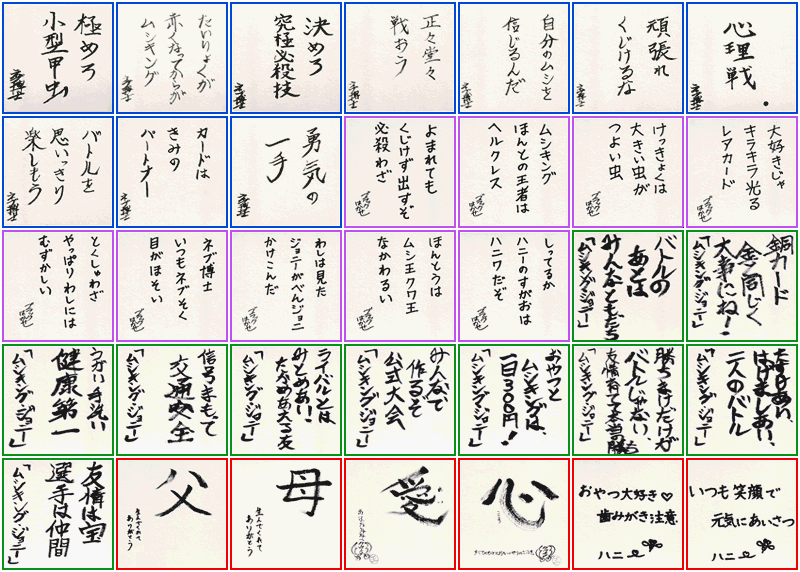 極めろ
小型甲虫
たいりょくが
赤くなってからが
ムシキング
決めろ
究極必殺技
正々堂々
戦おう
自分のムシを
信じるんだ
頑張れ
くじけるな
心理戦。
バトルを
思いっきり
楽しもう
カードは
きみの
パートナー
勇気の
一手
よまれても
くじけず出すぞ
必殺わざ
ムシキング
ほんとの王者は
ヘルクレス
けっきょくは
大きい虫が
つよい虫
大好きじゃ
キラキラ光る
レアカード
とくしゅわざ
やっぱりわしには
むずかしい
ネブ博士
いつもネブそく
目がほそい
わしは見た
ジョニーがべんジョニ
かけこんだ
ほんとうは
ムシ王クワ王
なかわるい
しってるか
ハニーのすがおは
ハニワだぞ
バトルの
あとは
みんなともだち
「ムシキング・ジョニー」
銅カード
金と同じく
大事にね!
「ムシキング・ジョニー」
うがい手洗い
健康第一
「ムシキング・ジョニー」
信号まもって
交通安全
「ムシキング・ジョニー」
ライバルとは
みとめあい
たかめあえる友
「ムシキング・ジョニー」
みんなで
作るぞ
公式大会
「ムシキング・ジョニー」
おやつと
ムシキングは、
一日300円!
「ムシキング・ジョニー」
勝ちまけだけが
バトルじゃない、
友情育てて本当の勝ち
「ムシキング・ジョニー」
たたえあい、
はげましあい、
二人のバトル
「ムシキング・ジョニー」
友情は宝
選手は仲間
「ムシキング・ジョニー」
父
生んでくれて
ありがとう
母
生んでくれて
ありがとう
愛
心
おやつ大好き♡
歯みがき注意
ハニー
いつも笑顔で
元気にあいさつ
ハニー